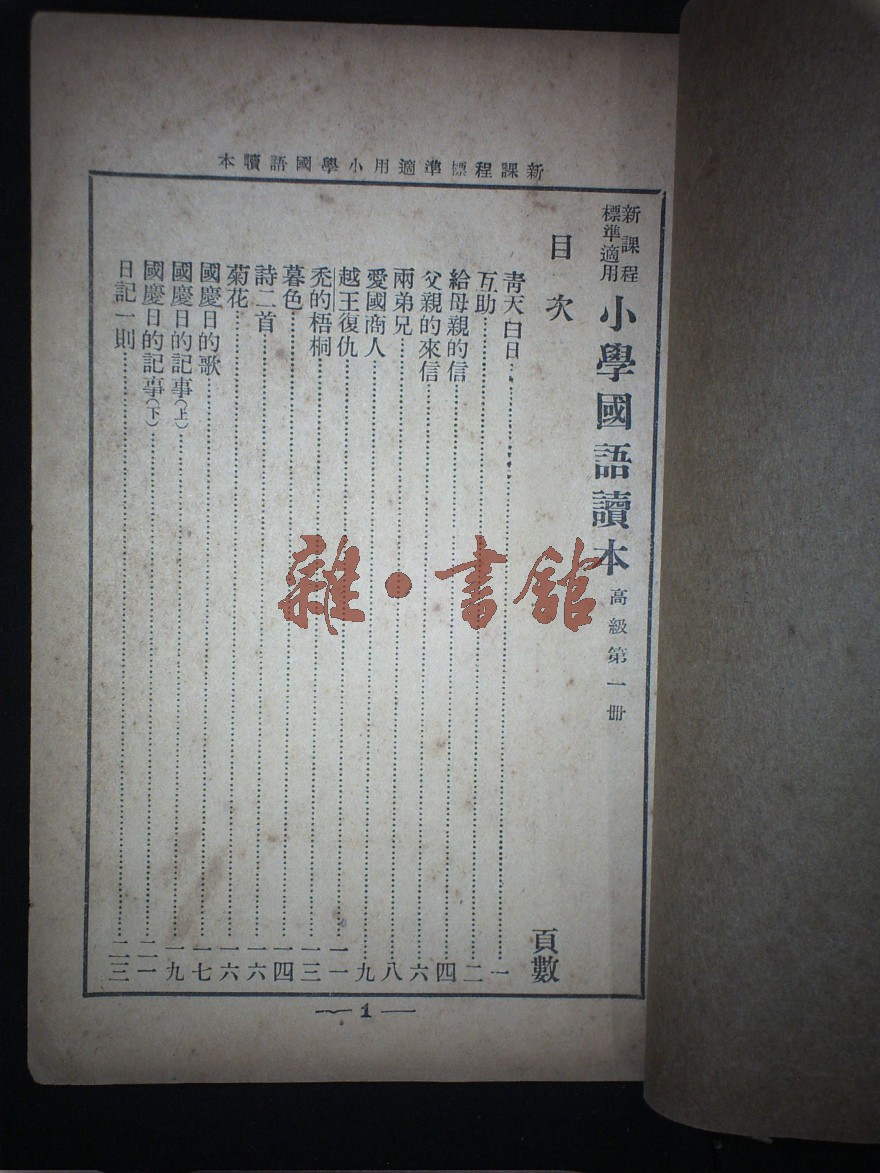 新課程標準適用小學國語讀本
新課程標準適用 小學國語讀本 高級第一冊
目次 頁數
青天白日……一
互助……二
給母親的信……四
父親的來信……六
兩弟兄……八
愛國商人……九
越王復仇……一一
禿的梧桐……一三
暮色……一四
詩二首……一六
菊花……一六
國慶日的歌……一七
國慶日的記事(上)……一九
國慶日的記事(下)……二一
日記一則……二三
1
雜·書館